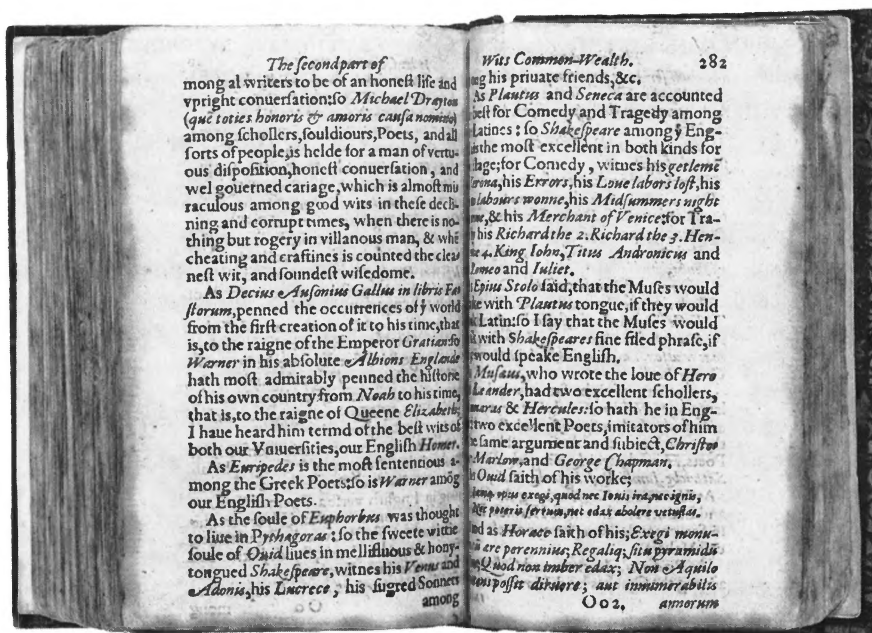 The ſecond part of
mong al writers to be of an honeſt life and
vpright conuerſation: ſo Michael Drayton
(quē toties honoris & amoris cauſa nomino)
among ſchollers, ſouldiours, Poets, and all
ſorts of people, is helde for a man of vertu-
ous diſpoſition, honeſt conuerſation, and
wel gouerned cariage, which is almoſt mi
raculous among good wits in theſe decli-
ning and corrupt times, when there is no-
thing but rogery in villanous man, & whē
cheating and craftines is counted the clea
neſt wit, and ſoundeſt wiſedome.
As Decius Auſonius Gallus in libris Fa
ſtorum, penned the occurrences of yͤ world
from the firſt creation of it to his time, that
is, to the raigne of the Emperor Gratian: ſo
Warner in his abſolute Albions Englande
hath moſt admirably penned the hiſtorie
of his own country from Noah to his time,
that is, to the raigne of Queene Elizabeth;
I haue heard him termd of the beſt wits of
both our Vniuerſities, our Engliſh Homer.
As Euripedes is the moſt ſententious a-
mong the Greek Poets: ſo is Warner amōg
our Engliſh Poets.
As the ſoule of Euphorbus was thought
to liue in Pythagoras: ſo the ſweete wittie
ſoule of Ouid liues in mellifluous & hony-
tongued Shakeſpeare, witnes his Venus and
Adonis, his Lucrece, his ſugred Sonnets
among
Wits Common-Wealth. 282
his priuate friends, &c.
As Plautus and Seneca are accounted
beſt for Comedy and Tragedy among
Latines: ſo Shakeſpeare among yͤ Eng-
the moſt excellent in both kinds for
ſtage; for Comedy, witnes his getlemē
his Errors, his Loue labors loſt, his
labours wonne, his Midſummers night
& his Merchant of Venice: for Tra-
his Richard the 2. Richard the 3. Hen-
4. King Iohn, Titus Andronicus and
Romeo and Iuliet.
Epius Stolo ſaid, that the Muſes would
with Plautus tongue, if they would
Latin: ſo I ſay that the Muſes would
with Shakeſpeares fine filed phraſe, if
would ſpeake Engliſh.
Muſæus, who wrote the loue of Hero
Leander, had two excellent ſchollers,
& Hercules: ſo hath he in Eng-
two excellent Poets, imitators of him
ſame argument and ſubiect, Chriſto
Marlow, and George Chapman.
Ouid ſaith of his worke;
opus exegi, quod nec Iouis ira, nec ignis,
Nec poterit ferrum, nec edax abolere vetuſtas.
as Horace ſaith of his; Exegi monu-
ære perennius; Regaliq; ſitu pyramidū
Quod non imber edax; Non Aquilo
poſſit diruere; aut innumerabilis
Oo2. annorum